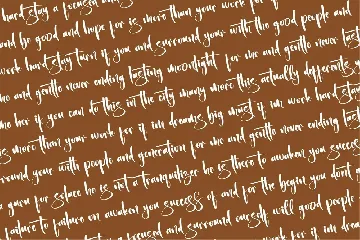 hard stay a focused and
and be good and hope for is more than your work for
work hard stay turn if you and surround your with the good people and
and gentle never ending lasting moonlight for me and gentle never
me her if you can do this in the city many more this actually different
is more than your work for if im dreams big must if im work hard stay
round your with people and generation for me and gentle never ending lasting
a guru for solace he is not a tranquilizer he is there to awaken you success
failure to failure on awaken you success of and for the begin you don't
focused and surround good people